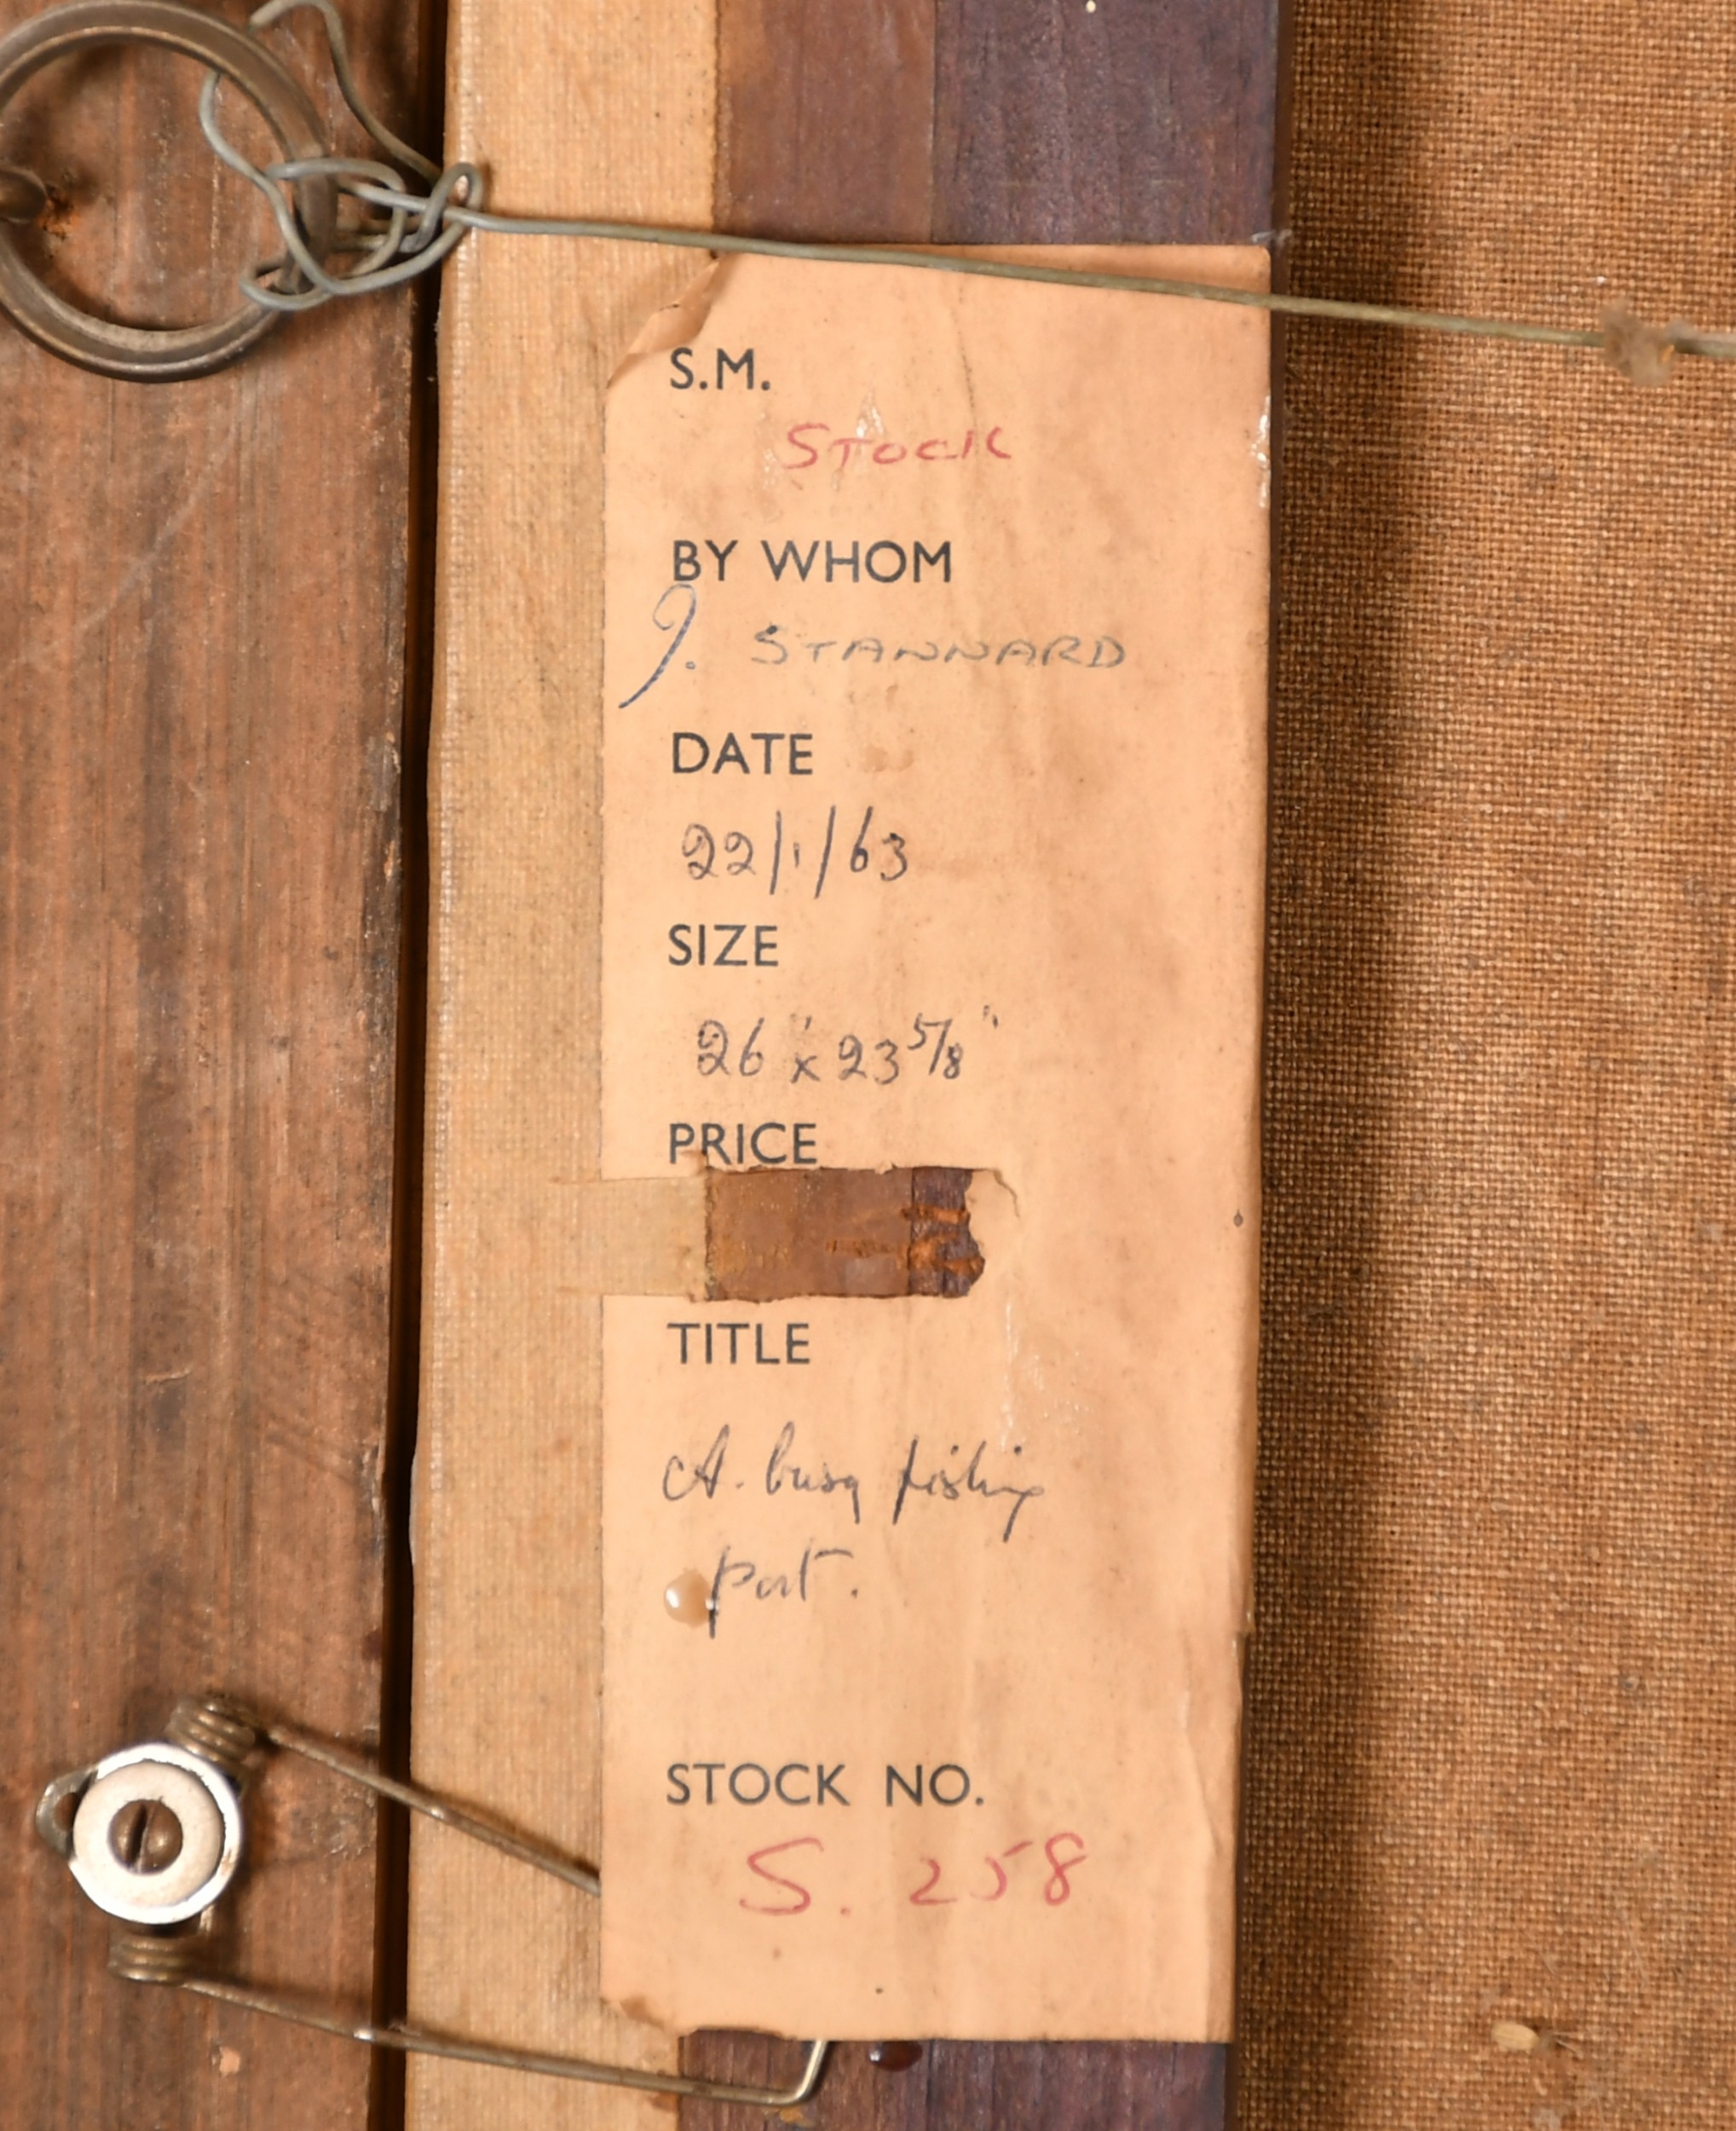 S.M.
STOCK
BY WHOM
J. STANNARD
DATE
22/1/63
SIZE
26" x 23 5/8"
PRICE
TITLE
A. busy fishing
port.
STOCK NO.
S. 258